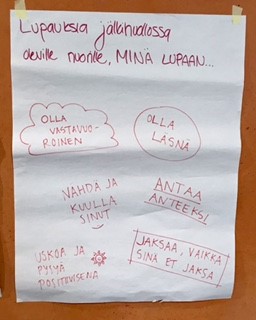 Lupauksia jälkihuollossa
oleville nuorille, MINÄ LUPAAN...
OLLA
VASTAVUO-
ROINEN
OLLA
LÄSNÄ
NÄHDÄ JA
KUULLA
SINUT
ANTAA
ANTEEKSI
USKOA JA
PYSYÄ
POSITIIVISENA
JAKSAA, VAIKKA
SINÄ ET JAKSA